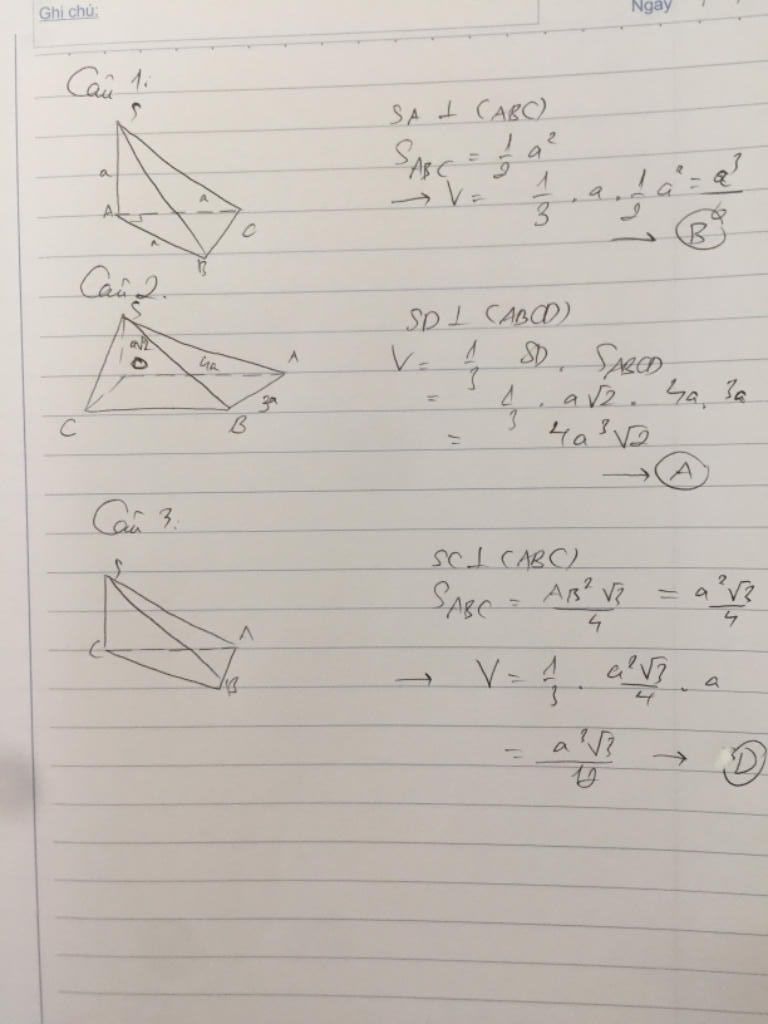 Ghi chú:
Ngày
Câu 1:
S
a
A
a
a
C
B
SA ⊥ (ABC)
S_ABC = 1/2 a²
→ V = 1/3 . a . 1/2 a² = a³/6
→ B
Câu 2.
S
a√2
D
4a
A
3a
C
B
SD ⊥ (ABCD)
V = 1/3 SD . S_ABCD
= 1/3 . a√2 . 4a. 3a
= 4a³√2
→ A
Câu 3:
S
C
A
B
SC ⊥ (ABC)
S_ABC = AB²√3/4 = a²√3/4
→ V = 1/3 . a²√3/4 . a
= a³√3/12 → D